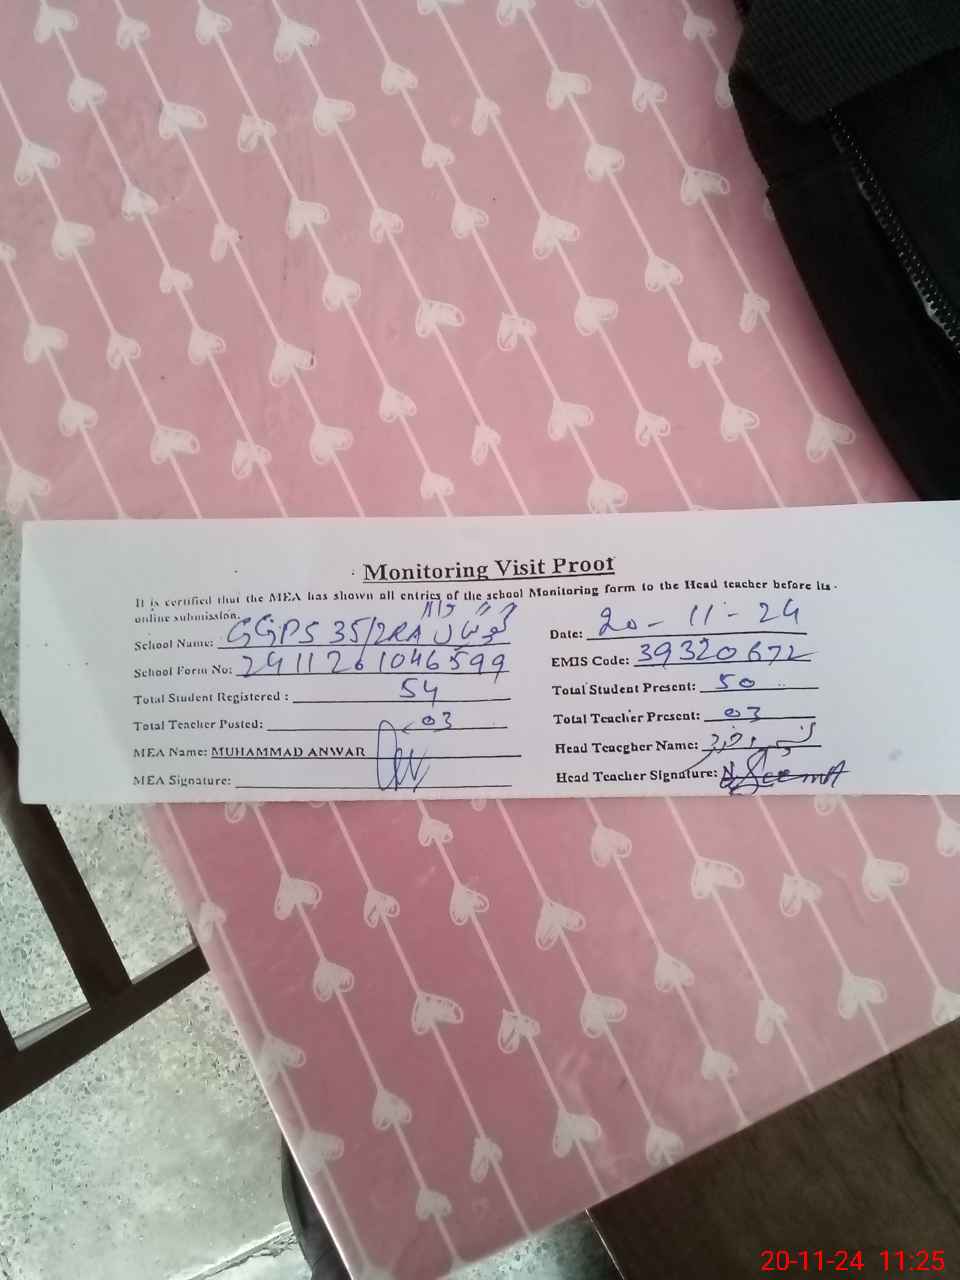 Monitoring Visit Proof
It is certified that the MEA has shown all entries of the school Monitoring form to the Head teacher before its
online submission.
School Name: GGPS 35/2RA
Date: 20-11-24
School Form No: 2411261046599
EMIS Code: 39320672
Total Student Registered : 54
Total Student Present: 50
Total Teacher Posted: 03
Total Teacher Present: 03
MEA Name: MUHAMMAD ANWAR
Head Teacgher Name:
MEA Signature:
Head Teacher Signature:
20-11-24 11:25